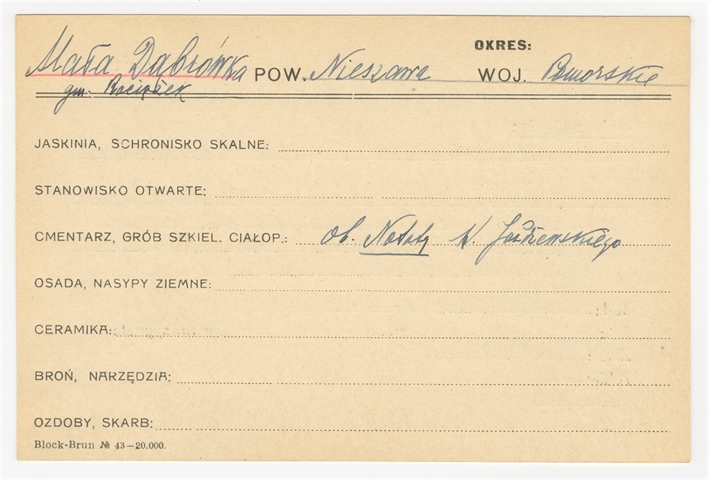 OKRES:
Mała Dąbrówka POW. Nieszawa WOJ. Pomorskie
gm. Raciążek
JASKINIA, SCHRONISKO SKALNE:
STANOWISKO OTWARTE:
CMENTARZ, GRÓB SZKIEL. CIAŁOP.: ob. Notaty K. Jażdżewskiego
OSADA, NASYPY ZIEMNE:
CERAMIKA:
BROŃ, NARZĘDZIA:
OZDOBY, SKARB:
Block-Brun № 43–20.000.